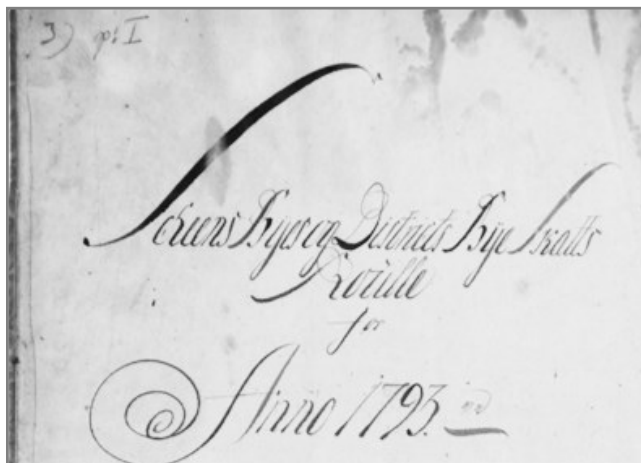 3) p: I
Scheens Byes og Districts Bye Skatts
Rolille
for
Anno 1793.